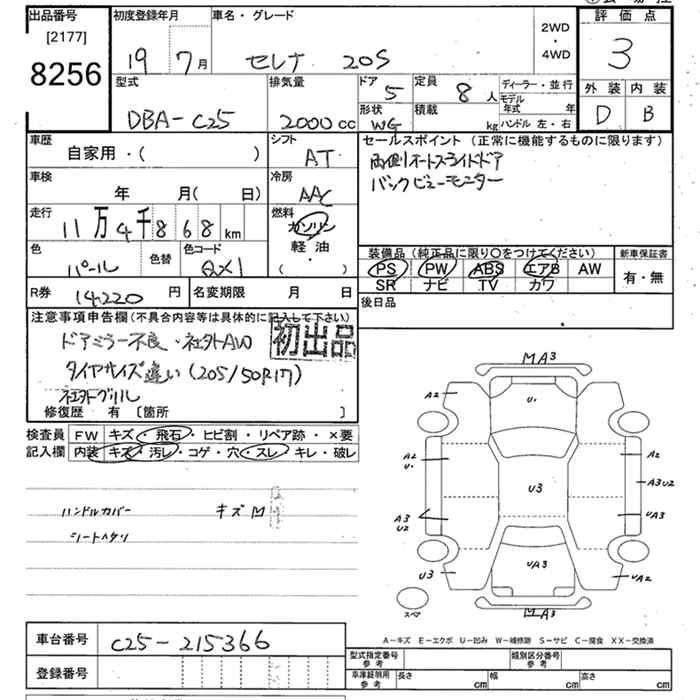 出品番号
[2177]
8256
初度登録年月
19 7月
車名・グレード
セレナ 20S
2WD
・
4WD
評価点
3
外装 内装
D B
型式
DBA-C25
排気量
2000cc
ドア
5
形状
WG
定員
8人
積載
kg
ディーラー・並行
モデル年式 年
ハンドル 左・右
車歴
自家用・( )
シフト
AT
セールスポイント (正常に機能するものに限ります)
両側オートスライドドア
バックビューモニター
車検
年 月( 日)
冷房
AAC
走行
11万4千868km
燃料
ガソリン
軽・油
( ・ )
色
パール
色替
色コード
QX1
装備品 (純正品に限り○をつけてください)
PS PW ABS エアB AW
SR ナビ TV カワ
新車保証書
有・無
R券 14,220円
名変期限 月 日
後日品
注意事項申告欄(不具合内容等は具体的に記入して下さい)
ドアミラー不良・社外AW
初出品
タイヤサイズ違い(205/50R17)
社外グリル
修復歴 有 [箇所 ]
検査員記入欄
FW キズ・飛石・ヒビ割・リペア跡・×要
内装 キズ・汚レ・コゲ・穴・スレ・キレ・破レ
ハンドルカバー キズM
シートヘタリ
MA3
A2
U・
A2
U・
A2
U3
A3U2
A3
U2
UA3
U3
UA3
UA2
スペア
MA3
A-キズ E-エクボ U-凹み W-補修跡 S-サビ C-腐食 XX-交換済
車台番号 C25-215366
登録番号
型式指定番号
参考
類別区分番号
参考
車庫証明用
参考
長さ cm 幅 cm 高さ cm